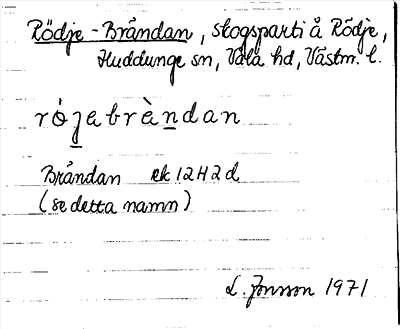 Rödje-Brändan, skogsparti å Rödje,
Huddunge sn, Våla hd, Västm. l.
rȯʒebrὲndan
Brändan ek 12H2d
(se detta namn)
L. Jonsson 1971